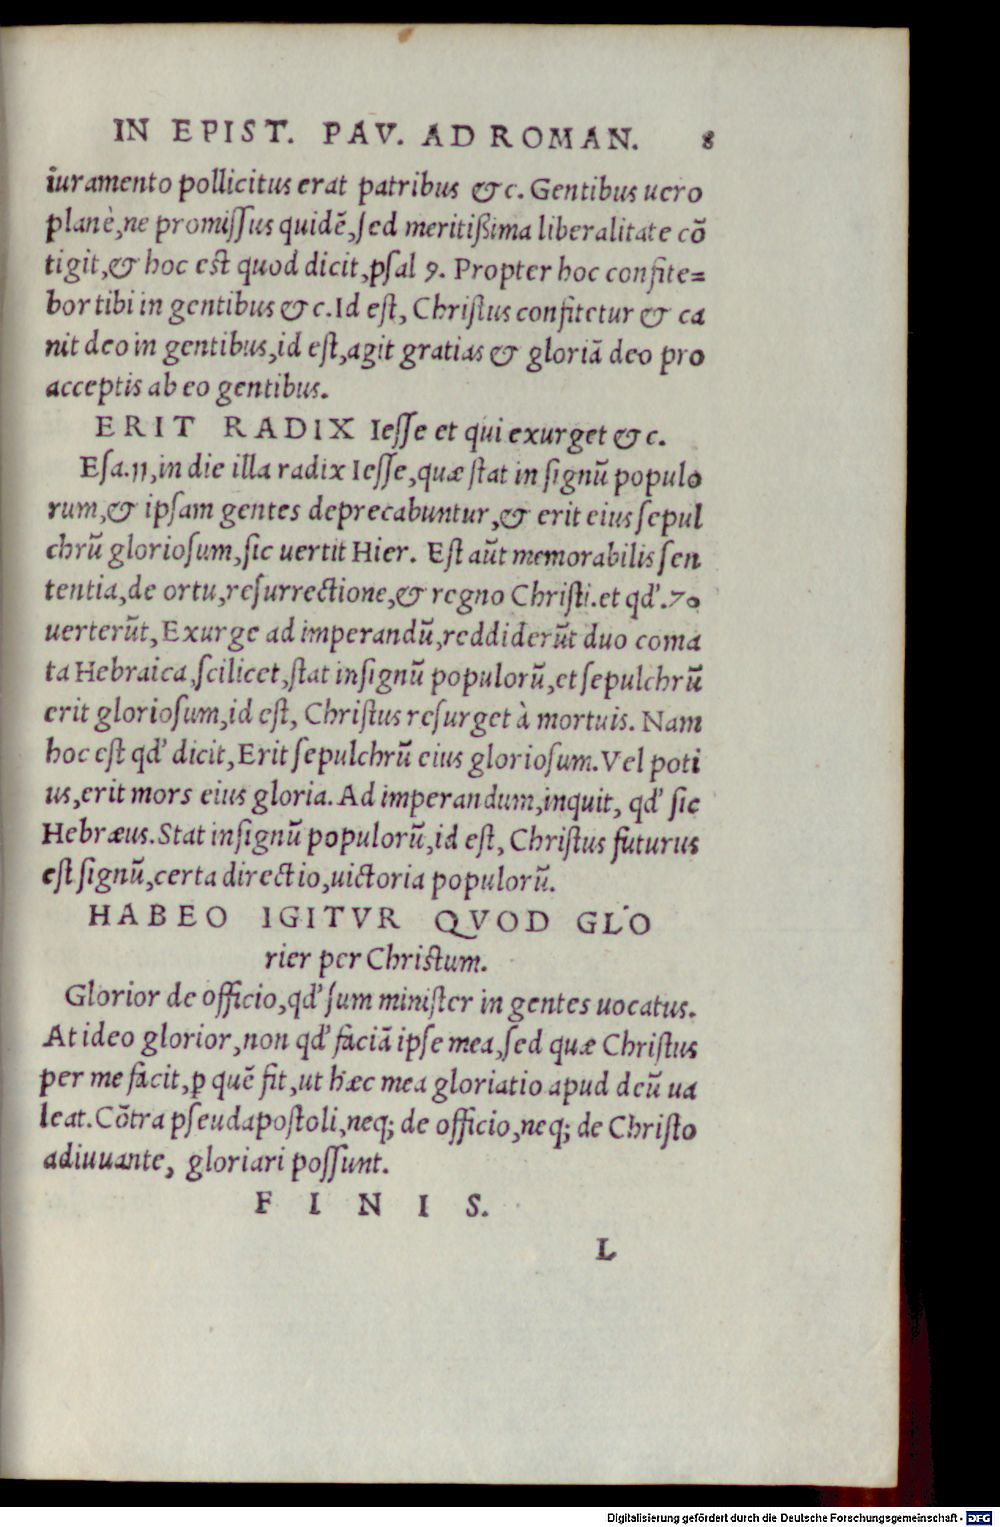 IN EPIST. PAV. AD ROMAN. 8
iuramento pollicitus erat patribus &c. Gentibus uero
planè, ne promissus quidē, sed meritißima liberalitate cō
tigit, & hoc est quod dicit, psal 9. Propter hoc confite=
bor tibi in gentibus &c. Id est, Christus confitetur & ca
nit deo in gentibus, id est, agit gratias & gloriā deo pro
acceptis ab eo gentibus.
ERIT RADIX Iesse et qui exurget &c.
Esa. 11, in die illa radix Iesse, quæ stat in signū populo
rum, & ipsam gentes deprecabuntur, & erit eius sepul
chrū gloriosum, sic uertit Hier. Est aūt memorabilis sen
tentia, de ortu, resurrectione, & regno Christi. et qd'. 70
uerterūt, Exurge ad imperandū, reddiderūt duo coma
ta Hebraica, scilicet, stat in signū populorū, et sepulchrū
erit gloriosum, id est, Christus resurget à mortuis. Nam
hoc est qd' dicit, Erit sepulchrū eius gloriosum. Vel poti
us, erit mors eius gloria. Ad imperandum, inquit, qd' sic
Hebræus. Stat in signū populorū, id est, Christus futurus
est signū, certa directio, uictoria populorū.
HABEO IGITVR QVOD GLO
rier per Christum.
Glorior de officio, qd' sum minister in gentes uocatus.
At ideo glorior, non qd' faciā ipse mea, sed quæ Christus
per me facit, ꝑ quē fit, ut hæc mea gloriatio apud deū ua
leat. Cōtra pseudapostoli, neq; de officio, neq; de Christo
adiuuante, gloriari possunt.
FINIS.
L
Digitalisierung gefördert durch die Deutsche Forschungsgemeinschaft - DFG